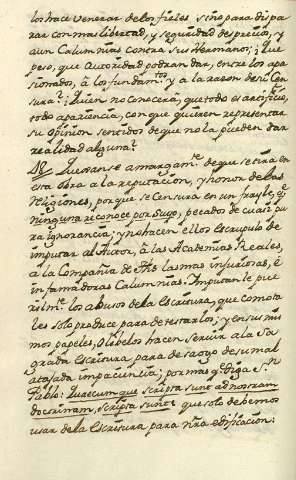 los hace venerar de los fieles, sino para dispa
rar con mas libertad, y seguridad desprecios, y
aun Calumnias contra sus Hermanos; ¿Que
peso, que Autoridad podran dar, entre los apa
sionados, à los fundam.tos y a la razon de su Cen
sura? ¿Quien no conocerà, que todo es artificio,
todo apariencia, con que quieren representar
su opinion sentidos de que no la pueden dar
realidad alguna?
Quexanse amargam.te de que se tira en
esta obra a la reputacion, y honor de las
Religiones, porque se Censura en un frayle, q.e
ninguna reconoce por Suyo, pecados de
ra ignorancia; y no hacen ellos Escrupulo de
imputar al Autor, à las Academias Reales,
a la Compañia de Jhs las mas injuriosas, è
infamadoras Calumnias. Imputanle pue
rilm.te los abusos de la Escritura, que como ta
les solo produce para detestarlos; y en sus mis
mos papeles, ò libelos hacen servir a la Sa
grada Escritura para desaogo de su mal
atajada impaciencia; por mas q.e Diga S.n
Pablo: Quaecumque scripta sunt ad nostram
doctrinam, scripta sunt: que solo debemos
usar de la Escritura para nra edificacion: